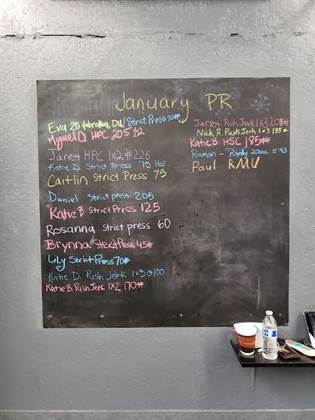 January PR
Eva 25 Unbroken DU Strict Press 70#
Miguel D HPC 205 #2
Janet HPC 1x2 #226
Katie D. Strict Press 75 lbs
Caitlin Strict Press 75
Daniel Strict press 205
Katie B Strict Press 125
Rosanna Strict press 60
Brynna Strict Press 45#
Lily Strict Press 70#
Katie D. Push Jerk 1x3 @100
Katie B Push Jerk 1x2 170#
Janet Push Jerk 1x2 205#
Nick R. Push Jerk 1x3 185#
Katie B HSC 185#
Ramon - Randy
Paul RMU